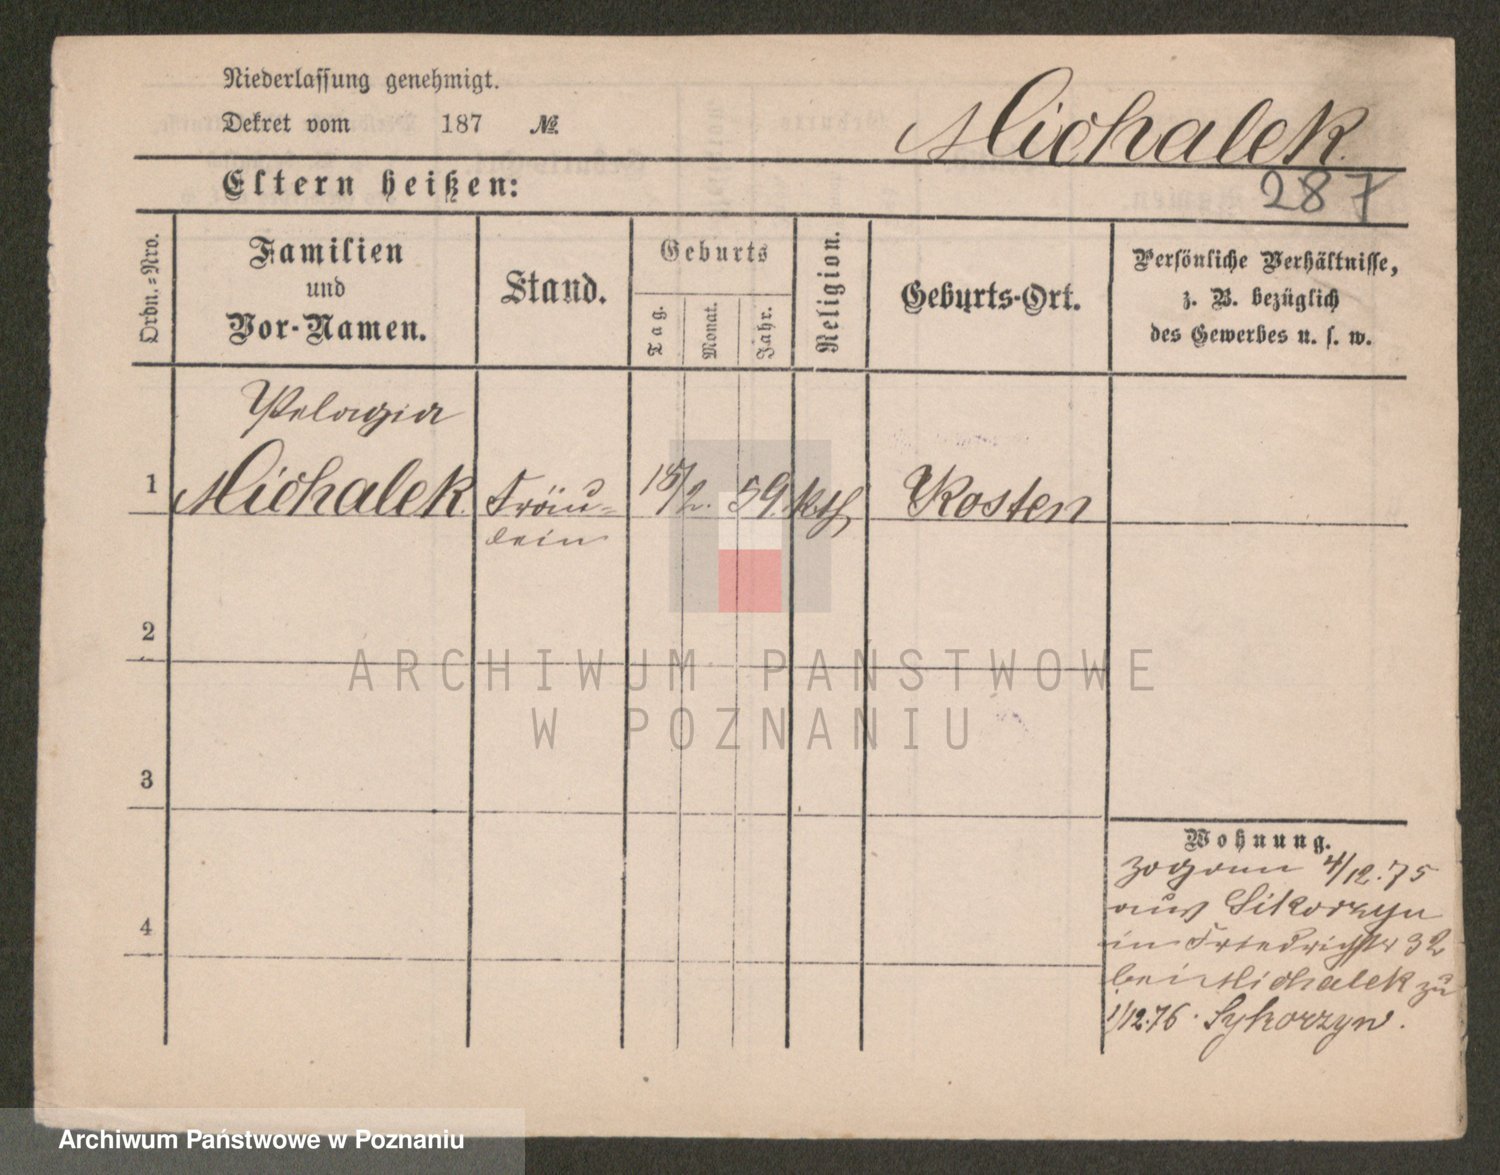 Niederlassung genehmigt.
Dekret vom 187 №
Michalek.
Eltern heißen:
287
Ordn.-Nro.
Familien
und
Vor-Namen.
Stand.
Geburts
Tag.
Monat.
Jahr.
Religion.
Geburts-Ort.
Persönliche Verhältnisse,
z. B. bezüglich
des Gewerbes u. s. w.
Pelagia
1 Michalek. Fräu- 18/2. 59. kth Kosten
lein
2
ARCHIWUM PAŃSTWOWE
W POZNANIU
3
Wohnung.
zogann 4/12.75
aus Sikorzyn
in Friedrichstr 32
bei Michalek zu
1/12.76. Sykorzyn.
4
Archiwum Państwowe w Poznaniu